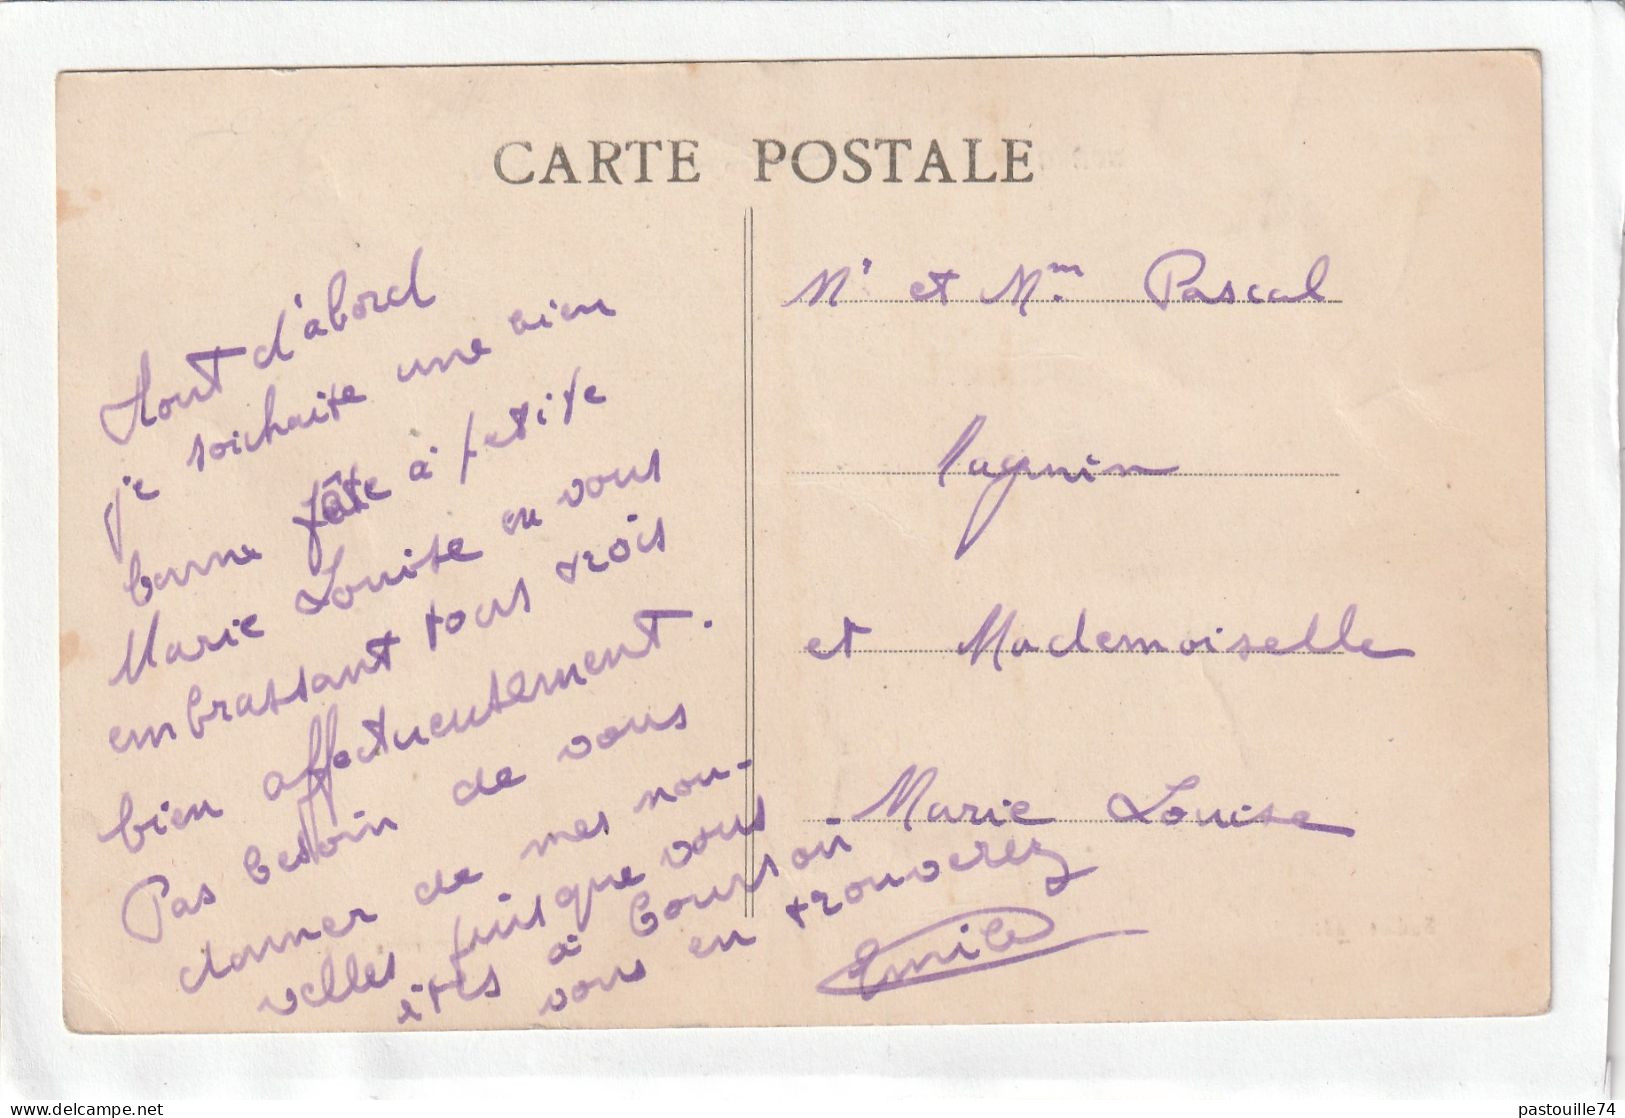 CARTE POSTALE
Tout d'abord
je souhaite une bien
bonne fête à petite
Marie Louise en vous
embrassant tous trois
bien affectueusement.
Pas besoin de vous
donner de mes nou-
velles puisque vous
êtes à Courson où
vous en trouverez
Emile
Mr et Mme Pascal
et Mademoiselle
Marie Louise
pastouille74